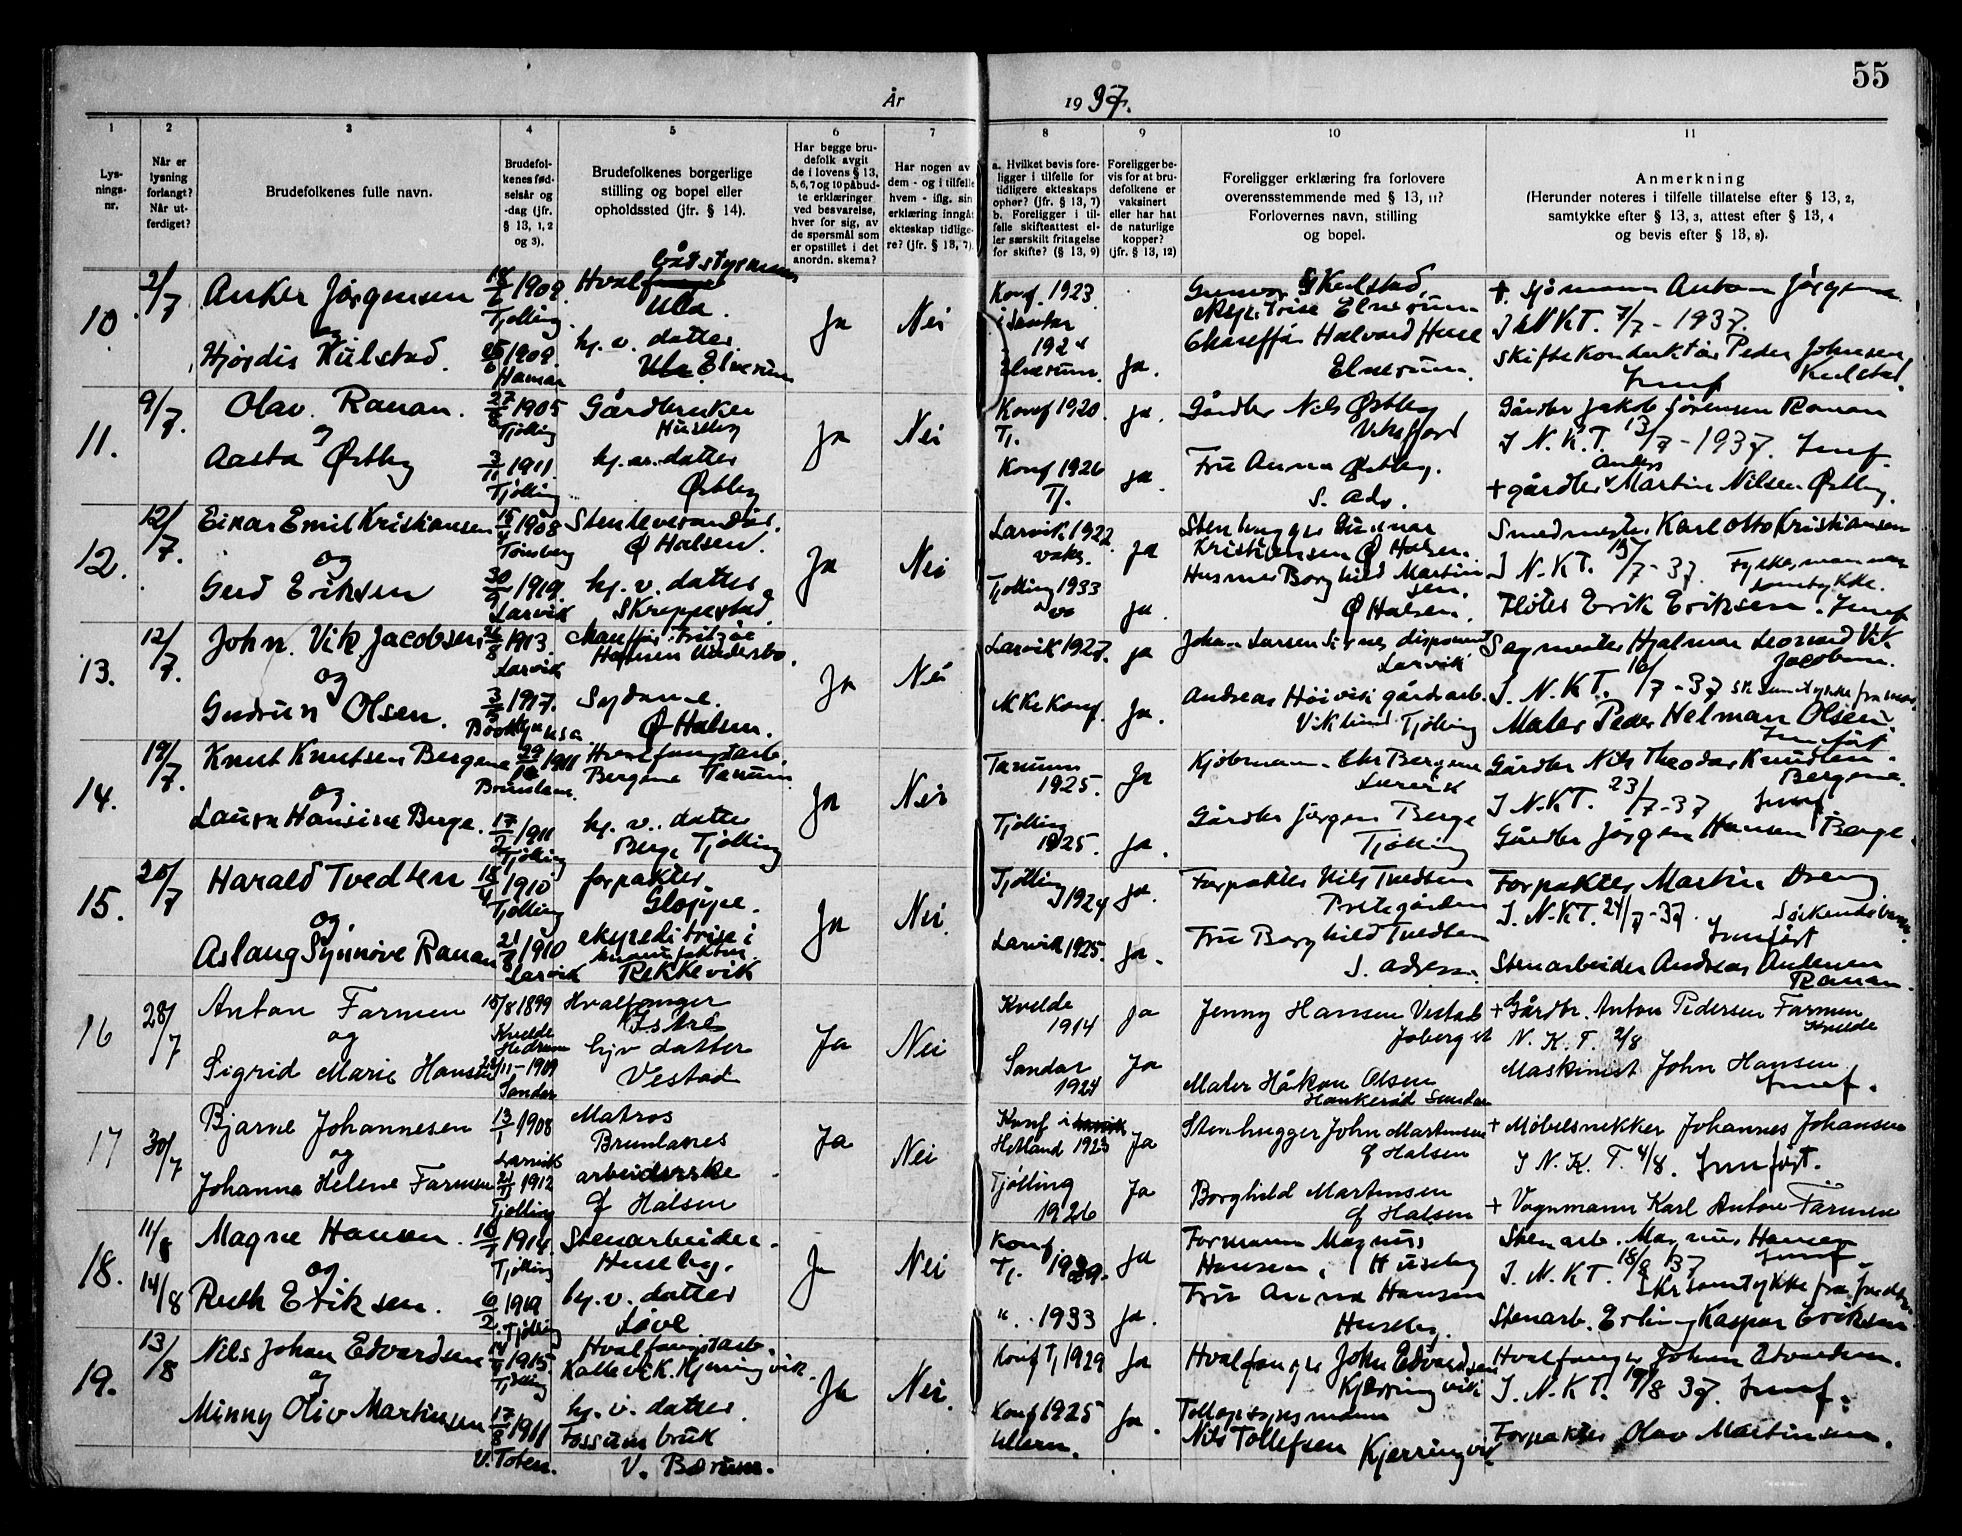 55
År 1937.
1 2 3 4 5 6 7 8 9 10 11
Lysningsnr.
Når er lysning forlangt? Når utferdiget?
Brudefolkenes fulle navn.
Brudefolkenes fødselsår og -dag (jfr. § 13, 1, 2 og 3).
Brudefolkenes borgerlige stilling og bopel eller opholdssted (jfr. § 14).
Har begge brudefolk avgit de i lovens § 13, 5, 6, 7 og 10 påbudte erklæringer ved besvarelse, hver for sig, av de spørsmål som er opstillet i det anordn. skema?
Har nogen av dem - og i tilfelle hvem - iflg. sin erklæring inngått ekteskap tidligere? (jfr. § 13, 7).
a. Hvilket bevis foreligger i tilfelle for tidligere ekteskaps ophør? (jfr. § 13, 7)
b. Foreligger i tilfelle skifteattest eller særskilt fritagelse for skifte? (§ 13, 9)
Foreligger bevis for at brudefolkene er vaksinert eller har hat de naturlige kopper? (jfr. § 13, 12)
Foreligger erklæring fra forlovere overensstemmende med § 13, 11? Forlovernes navn, stilling og bopel.
Anmerkning
(Herunder noteres i tilfelle tillatelse efter § 13, 2, samtykke efter § 13, 3, attest efter § 13, 4 og bevis efter § 13, 8).
10. 2/7 Anker Jørgensen 1909 Tjølling båtstyrmann Ula.
og
Hjørdis Kulstad. 1909 Hamar hj. v. datter Elverum
Ja Nei
Konf. 1923
Elverum. Ja.
Gunvor Kulstad, Elverum
Halvard
Elverum.
+ Sjømann Anton Jørgensen
I N.K.T. 7/7 - 1937.
Peder Johnsen Kulstad.
11. 9/7. Olav Ranan. 27/8 1905 Tjølling Gårdbruker Huseby
og
Aasta Østby 3/11 1911 Tjølling hj. v. datter Østby
Ja Nei
Konf 1920. Tj. Ja.
Konf 1926 Tj. Ja.
Gårdbr Nils Østby Viksfjord
Fru Anna Østby. S. adr.
Gårdbr Jakob Sørensen Ranan
I N.K.T. 13/7 - 1937. Innf.
+ gårdbr Anders Martin Nilsen Østby.
12. 12/7. Einar Emil Kristiansen 1908 Tønsberg Stenleverandør. Ø Halsen.
og
Gerd Eriksen 30/9 1919 Larvik hj. v. datter Skreppestad
Ja Nei
Larvik 1922 vaks. Ja
Tjølling 1933 Ja.
Stenhugger Gunnar Kristiansen Ø Halsen.
Borghild Martinsen. Ø Halsen.
Smedmester Karl Otto Kristiansen
I N.K.T. 19/7 - 37. Fylkesmannens samtykke.
Erik Eriksen. Innf
13. 12/7. John Vik Jacobsen 1913 Larvik
og
Gudrun Olsen. 1917. Brooklyn USA Sydame. Ø Halsen.
Ja Nei
Larvik 1927. Ja
Ikke Konf. Ja.
Johan Larsen disponent Larvik
Andreas Høivik gårdsarb. Tjølling
Sagmester Hjalmar Leonard Vik Jacobsen.
I. N.K.T. 16/7 - 37
Maler Peder Helman Olsen
Innført
14. 19/7. Knut Knutsen Bergene 29/12 1911 Brunlanes. Hvalfangstarb. Bergene Tanum
og
Laura Hansine Berge. 17/2 1911 Tjølling hj. v. datter Berge Tjølling
Ja Nei
Tanum 1925. Ja
Tjølling 1925. Ja.
Kjøbmann Bergene Larvik
Gårdbr Jørgen Berge Tjølling
Gårdbr Nils Theodor Knudsen. Bergene.
I N.K.T. 23/7 - 37 Innf.
Gårdbr Jørgen Hansen Berge.
15. 20/7 Harald Tvedten 1910 Tjølling forpakter. Gloppe.
og
Aslaug Synnøve Ranan 21/8 1910 Larvik ekspeditrise i manufaktur. Rekkevik
Ja Nei.
Tjølling 1924 Ja.
Larvik 1925. Ja.
Forpakter Nils Tvedten Prestegården
Fru Borghild Tvedten S. adresse.
Forpakter Martin
I. N.K.T. 24/7 - 37. Innført
Stenarbeider Andreas Andersen Ranan.
16 28/7 Anton Farmen 15/8 1899 Kvelde Hedrum Hvalfanger Istre
og
Sigrid Marie Hansen 22/11 - 1909 Sandar hjv datter Vestad
Ja Nei
Kvelde 1914 Ja
Sandar 1924 Ja
Jenny Hansen Vestad
Maler Håkon Olsen Haukerød Sandar
+ Gårdbr. Anton Pedersen Farmen Kvelde
N. K. T. 2/8
Maskinist John Hansen Innf.
17 30/7 Bjarne Johannesen 13/1 1908 Larvik Matros Brunlanes
og
Johanna Helene Farmen 21/11 1912 Tjølling arbeiderske Ø Halsen
Ja Nei
Konf i Hetland 1923 Ja
Tjølling 1926 Ja
Stenhugger John Martinsen Ø Halsen
Borghild Martinsen Ø Halsen
+ Møbelsnekker Johannes Johansen
I N. K. T. 4/8. Innført.
+ Vognmann Karl Anton Farmen
18. 11/8 14/8 Magne Hansen. 1914. Tjølling Stenarbeider. Huseby.
og
Ruth Eriksen. 6/2 1919 Tjølling hj. v. datter Løve
Ja Nei
Konf Tj. 1929. Ja
" 1933 Ja.
Formann Magnus Hansen, Huseby
Fru Anna Hansen Huseby.
Stenarb. Magnus Hansen Innf
I. N. K. T. 18/8 37
Skr samtykke fra
Stenarb. Erling Kaspar Eriksen
19. 13/8 Nils Johan Edvardsen 1915. Tjølling Hvalfangstarb. Kallevik. Kjerringvik.
og
Minny Oliv Martinsen 17/8 1911 V. Toten. hj. v. datter. Fossum bruk V. Bærum.
Ja Nei.
Konf Tj 1929 Ja
Konf 1925 Ullern. Ja.
Hvalfanger John Edvardsen Kjerringvik
Nils Tollefsen Kjerringvik.
Hvalfanger Johan Edvardsen.
I. N.K.T. 19/8 37. Innf.
Forpakter Olav Martinsen.